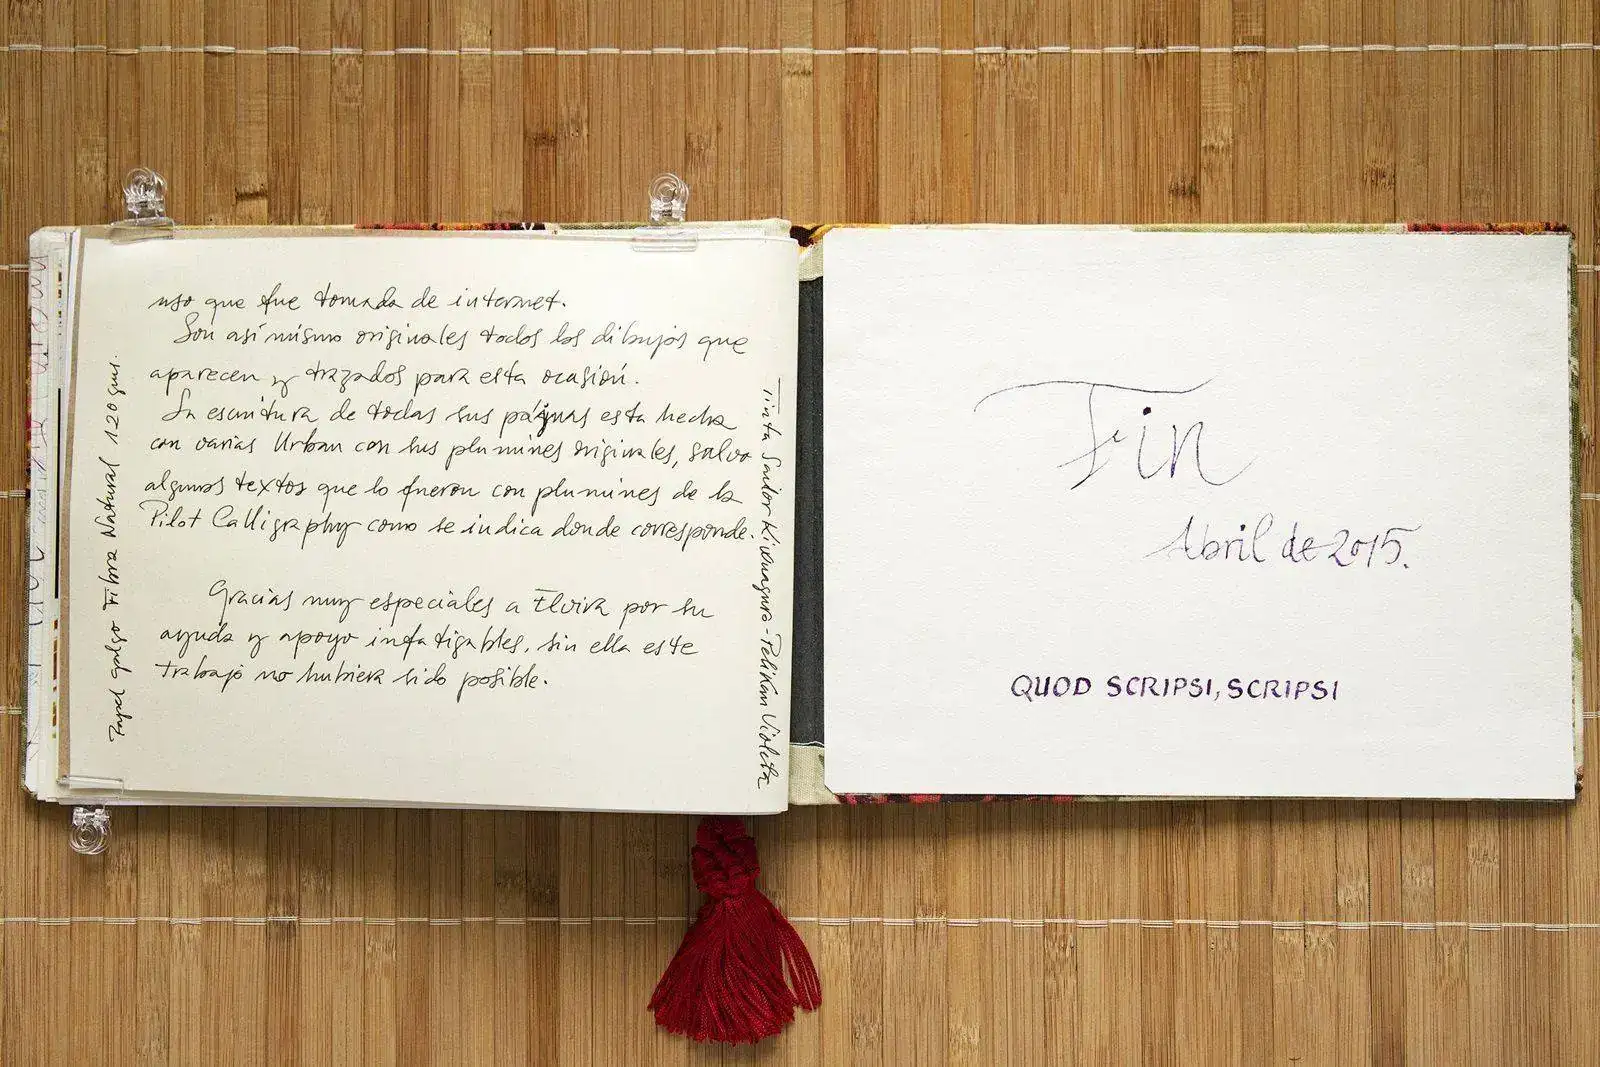 uso que fue tomada de internet.
Son asímismo originales todos los dibujos que
aparecen y trazados para esta ocasión.
La escritura de todas sus páginas esta hecha
con varias Urban con sus plumines originales, salvo
algunos textos que lo fueron con plumines de la
Pilot Calligraphy como se indica donde corresponde.
Gracias muy especiales a Elvira por su
ayuda y apoyo infatigables, sin ella este
trabajo no hubiera sido posible.
Papel Galgo Fibra Natural 120 gms.
Tinta Sailor Kiwaguro - Pelikan Violeta
Fin
Abril de 2015.
QUOD SCRIPSI, SCRIPSI